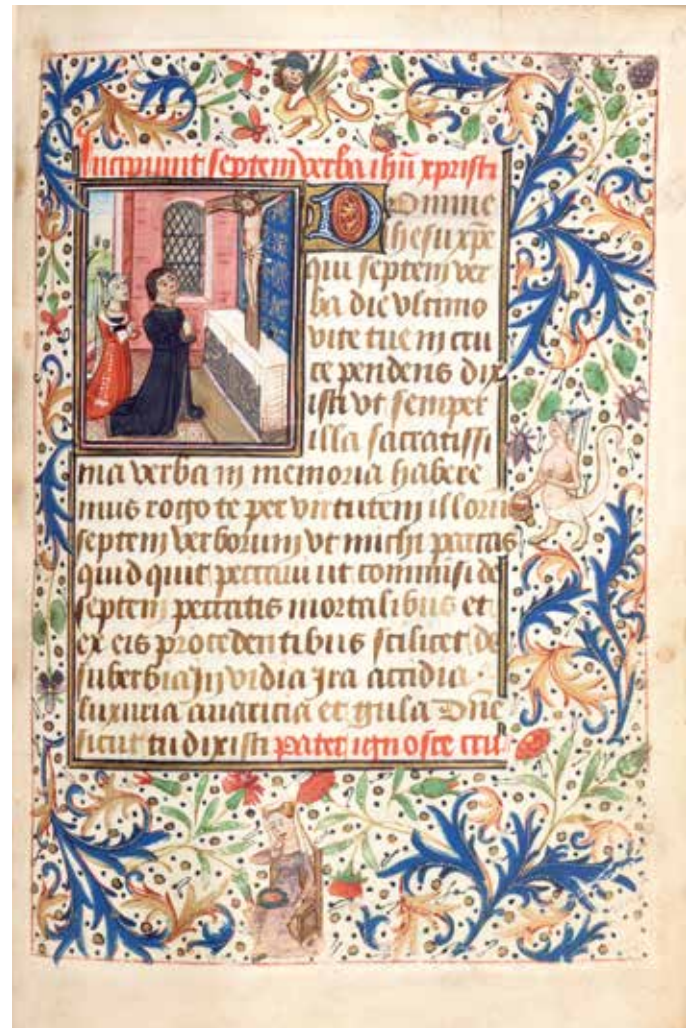 Incipiunt septem verba ihũ xpristi
Domine
hesu xp̄e
qui septem ver
ba die vltimo
vite tue in cru
ce pendens dix
isti vt semper
illa sacratissi
ma verba in memoria habere
mus rogo te per virtutem illorũ
septem verborum vt michi parcas
quid quit peccaui ut commisi de
septem peccatis mortalibus et
ex eis procedentibus scilicet de
suberbia Jnvidia Jra accidia ·
luxuria auaricia et gula Dñe
sicut tu dixisti pater ignosce cru